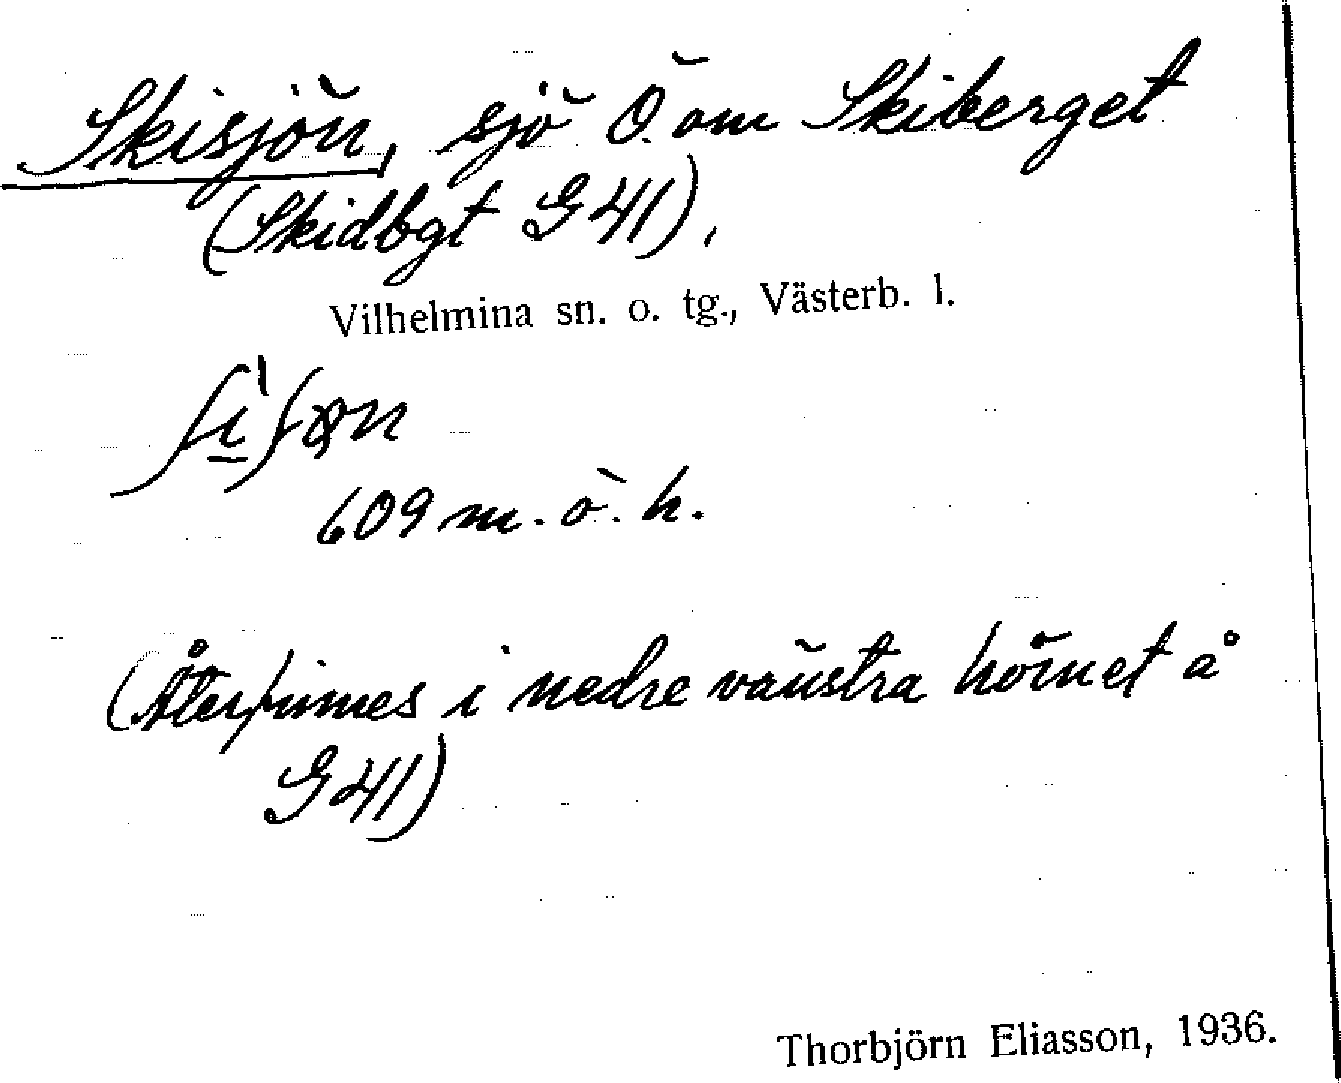 Skisjön, sjö Ö. om Skiberget
(Skidbgt G 41),
Vilhelmina sn. o. tg., Västerb. l.
ʃi̱ˋʃøn
609 m. ö. h.
(Återfinnes i nedre vänstra hörnet å
G 41)
Thorbjörn Eliasson, 1936.